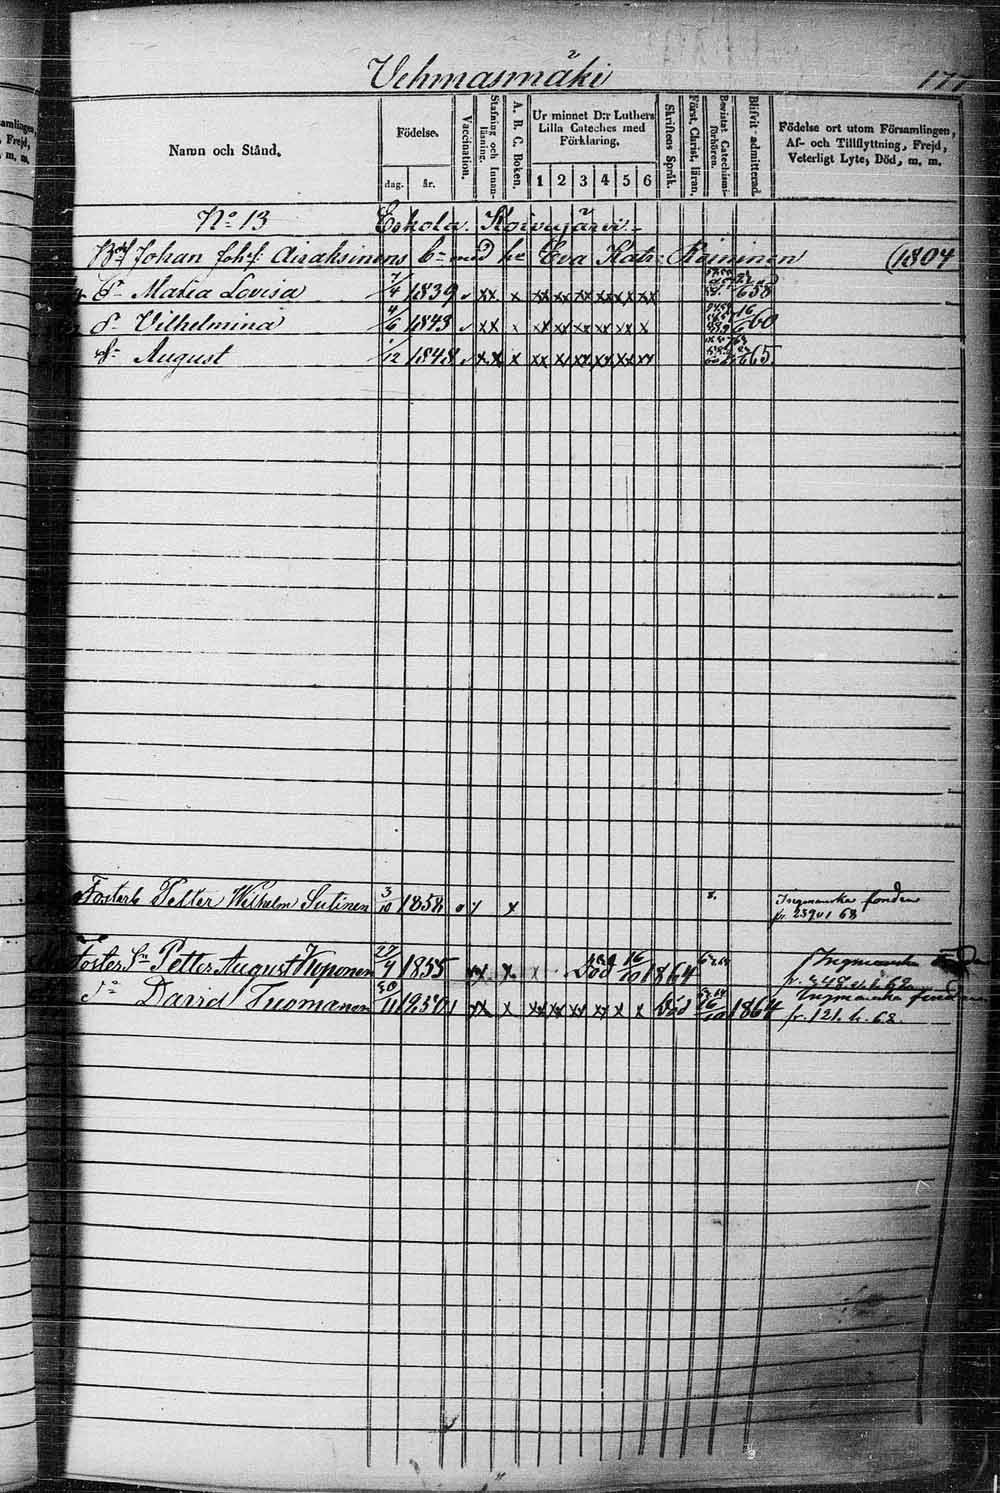 Vehmasmäki 177
Namn och Stånd.
Födelse.
dag. år.
Vaccination.
Stafning och Innan-
läsning.
A. B. C. Boken.
Ur minnet D:r Luthers
Lilla Cateches med
Förklaring.
1 2 3 4 5 6
Skriftens Språk.
Först. Christ. läran.
Bevistat Catechismi-
förhören.
Blifvit admitterad.
Födelse ort utom Församlingen,
Af- och Tillflyttning, Frejd,
Veterligt Lyte, Död, m. m.
No 13 Eskola Koivujärvi
Johan Joh:s: Airaksinens med Eva Katr: Räininen (1804
Maria Lovisa 7/4 1839 x x x xx xx xx xx xx xx 658
Vilhelmina 4/6 1843 x x x xx xx xx xx x x 16/6 60
August 1/12 1848 x x x xx xx xx xx xx xx 65
Fosterb Petter Wilhelm Sutinen 3/10 1858 x Ingmanska fonden
fr. 239
Foster Sn Petter August Kponen 27/4 1855 x x Död 16/10 1864 Ingmanska
David Tuomanen 20/11 1850 x x x xx xx xx xx x x Död 16/10 1864 Ingmanska fonden
fr. 121. h. 68.